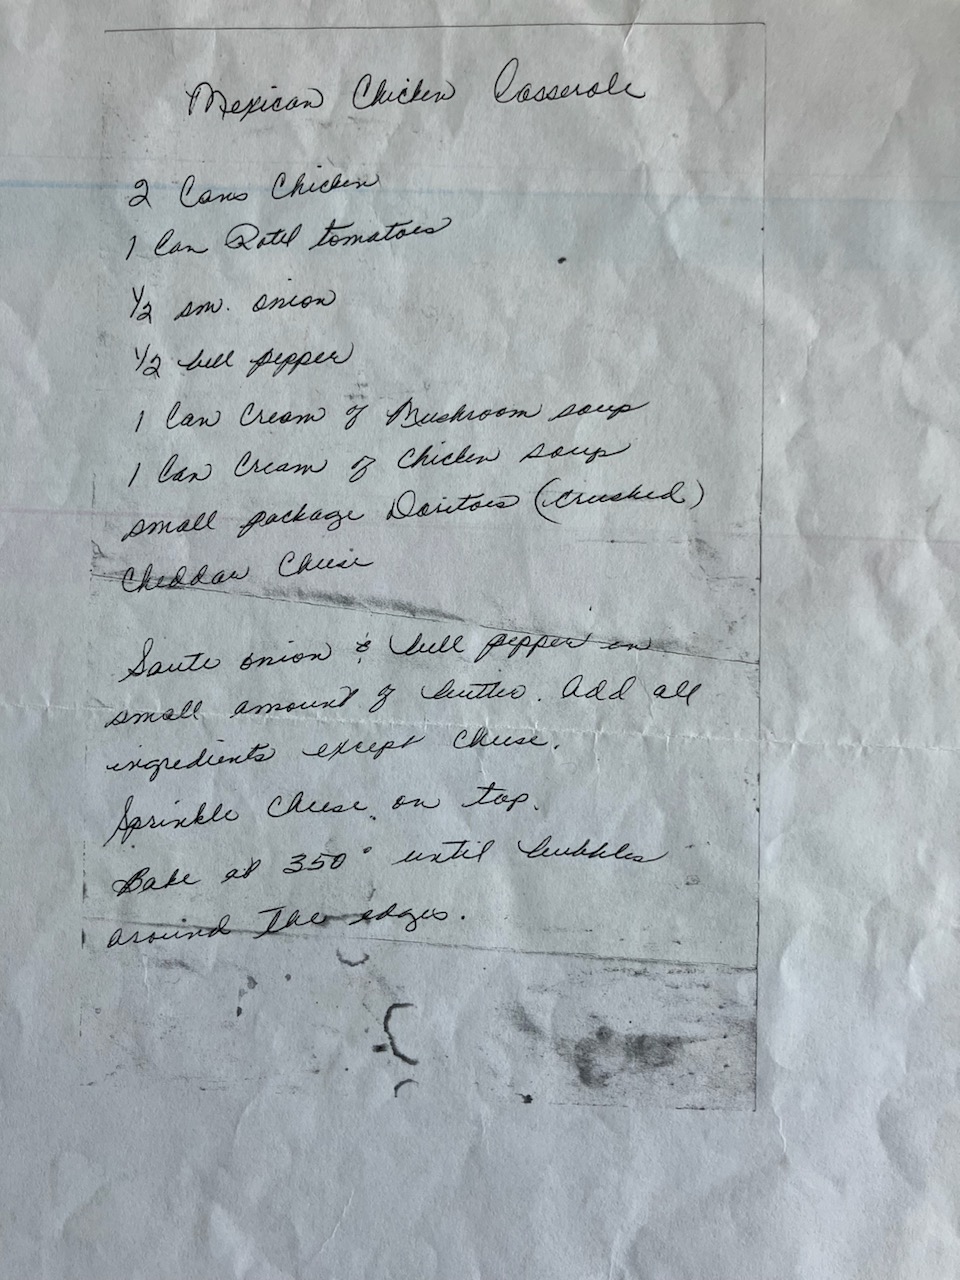 Mexican Chicken Casserole
2 Cans Chicken
1 Can Rotel tomatoes
1/2 sm. onion
1/2 bell pepper
1 Can Cream of Mushroom soup
1 Can Cream of Chicken soup
small package Doritoes (crushed)
Cheddar Cheese
Saute onion & bell pepper in
small amount of butter. Add all
ingredients except cheese.
Sprinkle cheese on top.
Bake at 350° until bubbles
around the edges.